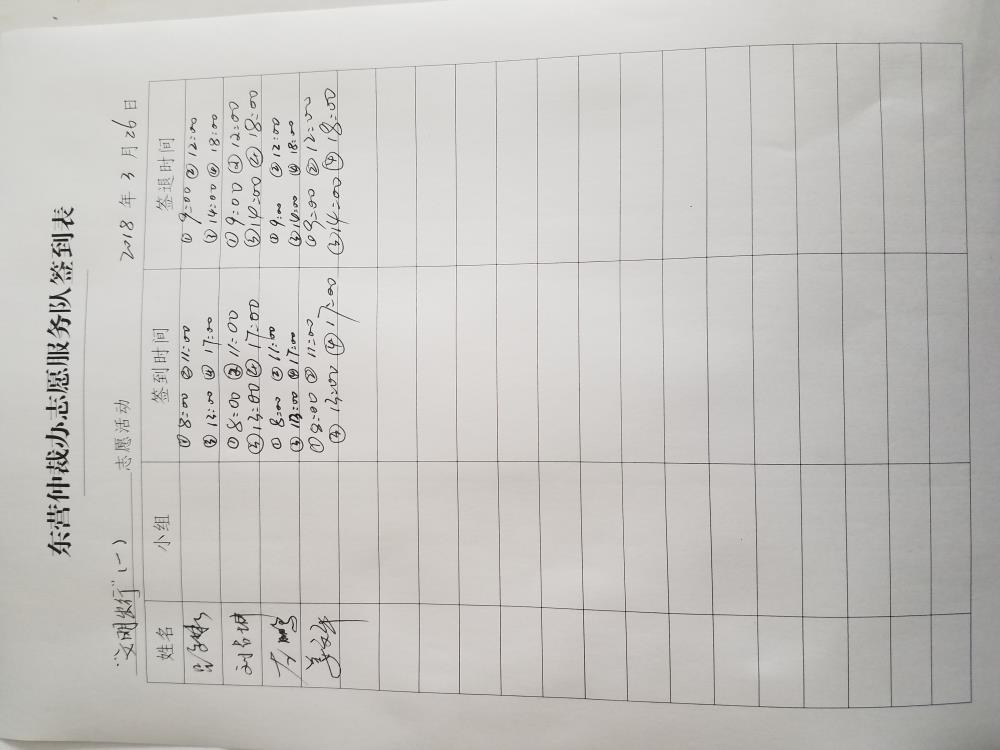 东营仲裁办志愿服务队签到表
“文明出行”(一)志愿活动 2018年3月26日
姓名 小组 签到时间 签退时间
①8:00 ②11:00 ①9:00 ②12:00
③13:00 ④17:00 ③14:00 ④18:00
①8:00 ②11:00 ①9:00 ②12:00
③13:00 ④17:00 ③14:00 ④18:00
①8:00 ②11:00 ①9:00 ②12:00
③13:00 ④17:00 ③14:00 ④18:00
①8:00 ②11:00 ①9:00 ②12:00
③13:00 ④17:00 ③14:00 ④18:00